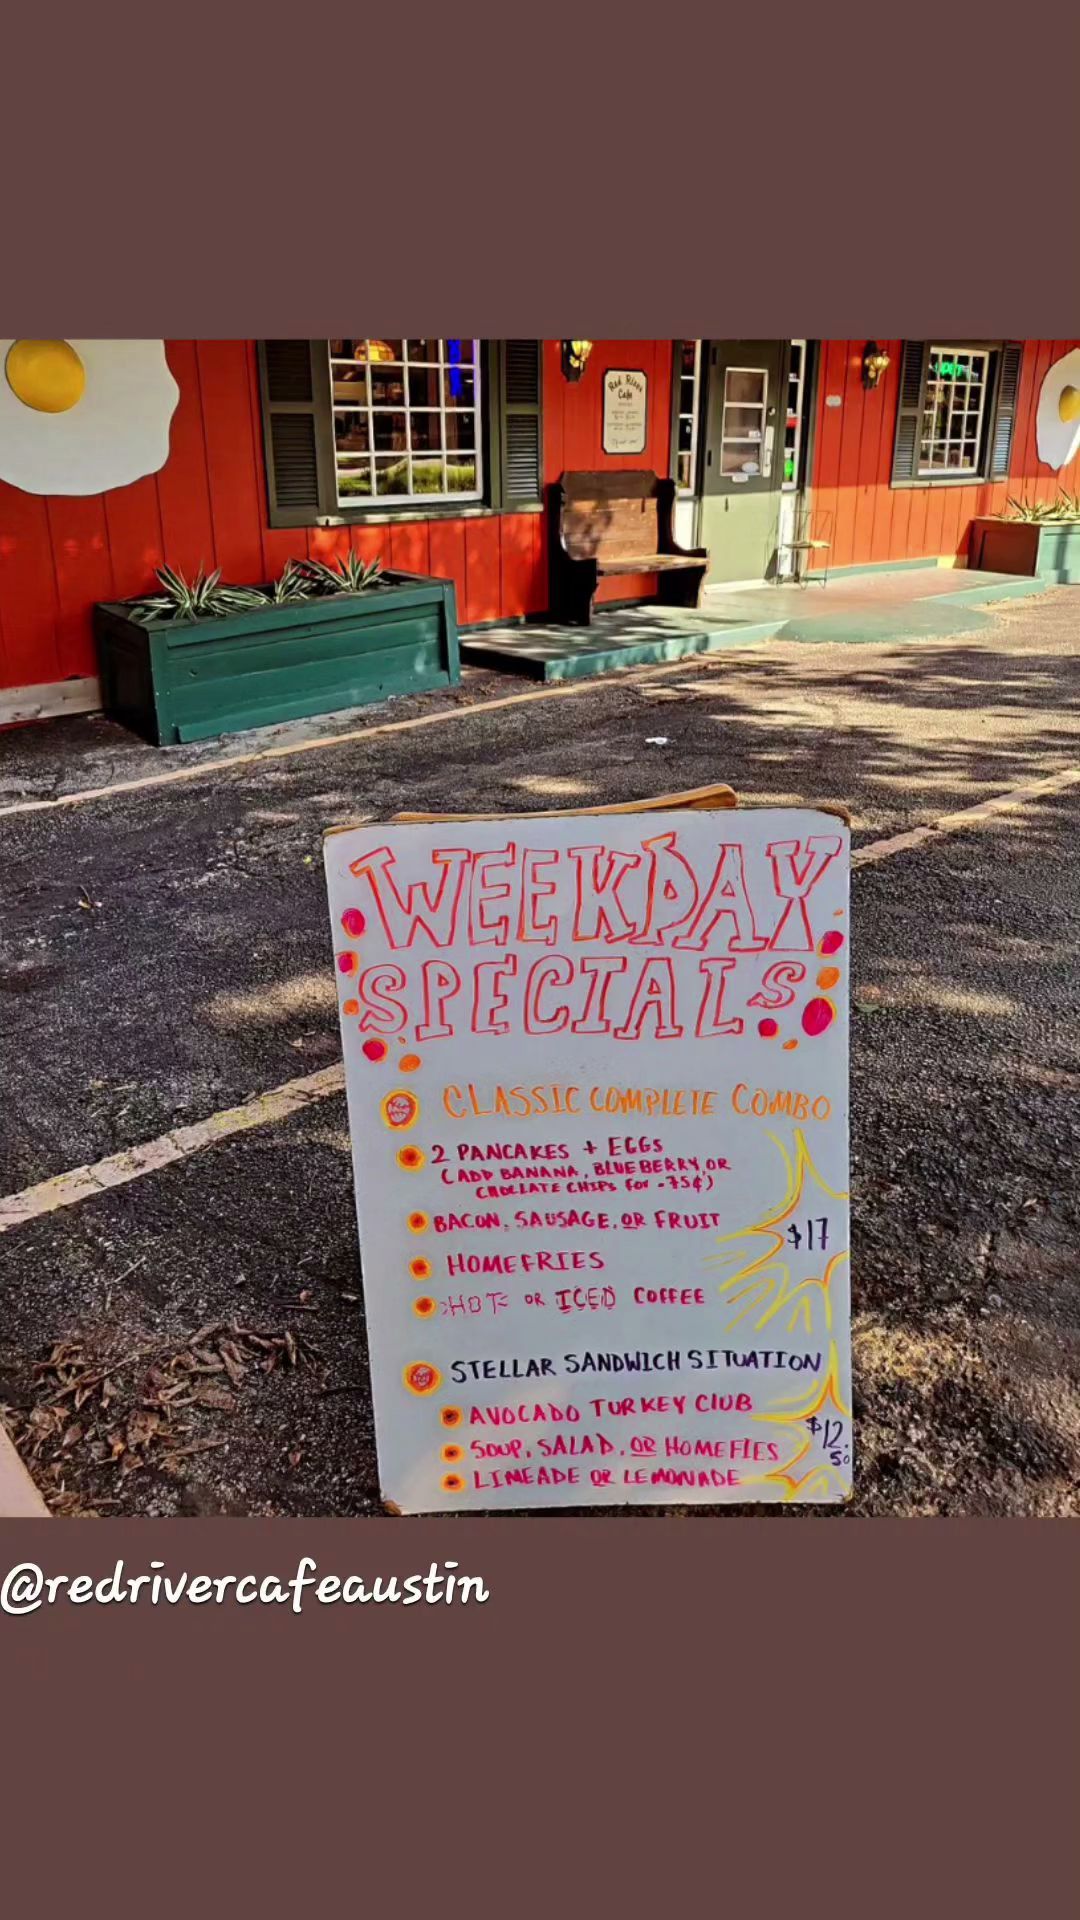 OPEN
Red River
Cafe
WEEKDAY
SPECIALS
CLASSIC COMPLETE COMBO
2 PANCAKES + EGGS
(ADD BANANA, BLUEBERRY, OR
CHOCLLATE CHIPS for .75¢)
BACON, SAUSAGE, OR FRUIT
$17
HOMEFRIES
HOT OR ICED COFFEE
STELLAR SANDWICH SITUATION
AVOCADO TURKEY CLUB
$12.50
SOUP, SALAD, OR HOMEFIES
LIMEADE OR LEMONADE
@redrivercafeaustin